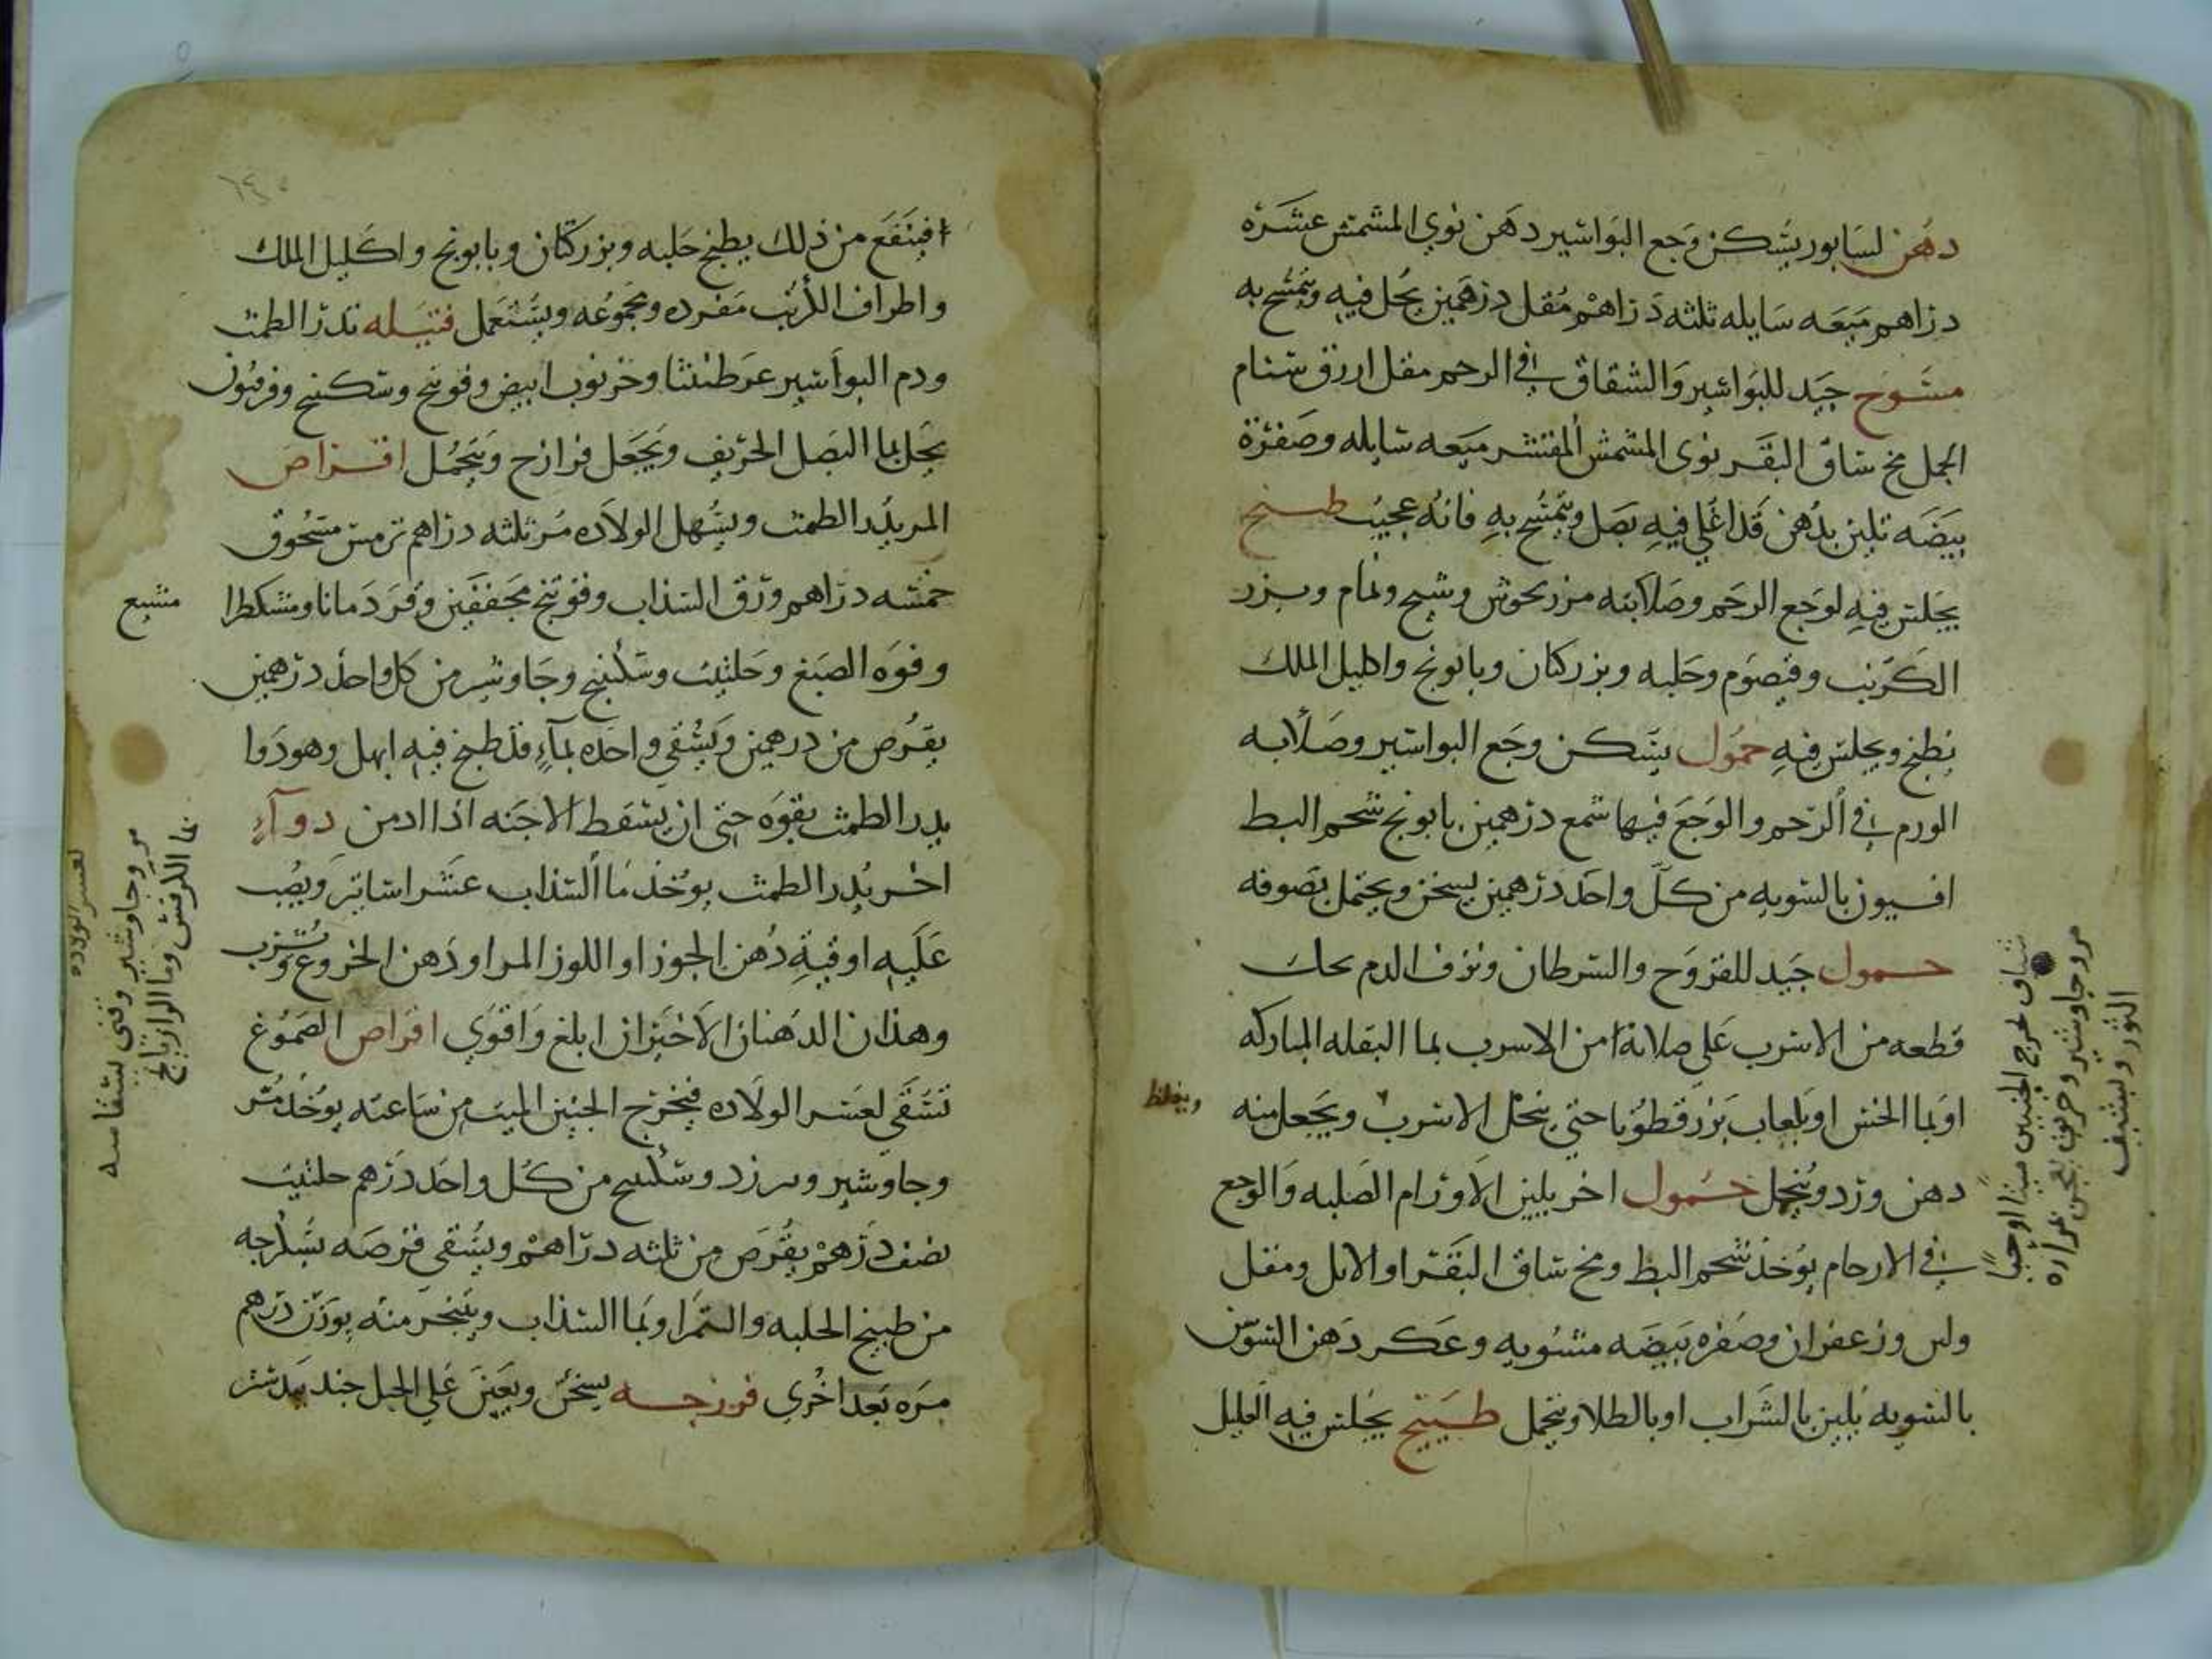 دهن لسابور يسكن وجع البواسير دهن نوي المشمش عشره
دراهم ميعه سايله ثلثه دراهم مقل درهمين يحل فيه ويتمسح به
مسوح جيد للبواسير والشقاق في الرحم مقل ازرق سنام
الجمل مخ ساق البقر نوى المشمش المقشر ميعه سايله وصفرة
بيضه تلين بدهن قد اغلي فيه بصل ويتمسح به فانه عجيب طبيخ
يجلس فيه لوجع الرحم وصلابته مرزنجوش وشيح ونمام وبزر
الكرنب وقيصوم وحلبه وبزركتان وبابونج واكليل الملك
يطبخ ويجلس فيه حمول يسكن وجع البواسير وصلابه
الورم في الرحم والوجع فيها شمع درهمين بابونج شحم البط
افسيون بالسويه من كل واحد درهمين يسخن ويحتمل بصوفه
حمول جيد للقروح والسرطان ونزف الدم يحك
قطعه من الاسرب على صلابة من الاسرب بما البقله المباركه
او بما الخس او بلعاب بزرقطونا حتى ينحل الاسرب ويجعل منه
ويغلظ
دهن ورد ويتحمل حمول اخر يلين الاورام الصلبه والوجع
في الارحام يوخذ شحم البط ومخ ساق البقر او الابل ومقل
ولبن وزعفران وصفره بيضه مشويه وعكر دهن السوسن
بالسويه يلين بالشراب او بالطلا ويتحمل طبيخ يجلس فيه العليل
شياف لخرج الجنين ميتا او حيا
مر وجاوشير وخربق يعجن بمراره
الثور ويشيف
فينتفع من ذلك يطبخ حلبه وبزركتان وبابونج واكليل الملك
واطراف الكرنب مفرده ومجموعه ويستعمل فتيله تدر الطمث
ودم البواسير عرطنيثا وخرنوب ابيض وفوتنج وسكبينج وفربيون
يحل بما البصل الحريف ويجعل فرازح ويتحمل اقراص
المر يدر الطمث ويسهل الولاده مر ثلثه دراهم ترمس مسحوق
خمسه دراهم ورق السذاب وفوتنج مجففين وقردمانا ومشكطرا
مشيع
وفوه الصبغ وحلتيت وسكبينج وجاوشير من كل واحد درهمين
يقرص من درهمين ويسقي واحده بمآء قد طبخ فيه ابهل وهو دوا
يدر الطمث بقوه حتى ان يسقط الاجنه اذا ادمن دوآء
اخر يدر الطمث يوخذ ما السذاب عشر اساتير ويصب
عليه اوقية دهن الجوز او اللوز المر او دهن الخروع ويشرب
وهذان الدهنان الاخيران ابلغ واقوي اقراص الصموغ
تسقي لعسر الولاده فيخرج الجنين الميت من ساعته يوخذ مر
وجاوشير وبيرزد وسكبينج من كل واحد درهم حلتيت
نصف درهم يقرص من ثلثه دراهم ويسقي قرصه بسكرجه
من طبيخ الحلبه والتمر او بما السذاب ويتبخر منه بوزن درهم
مره بعد اخري فرزجه يسخن ويعين علي الحبل جندبيدستر
لعسر الولاده
مر وجاوشير
بما الكرفس وما الرازيانج